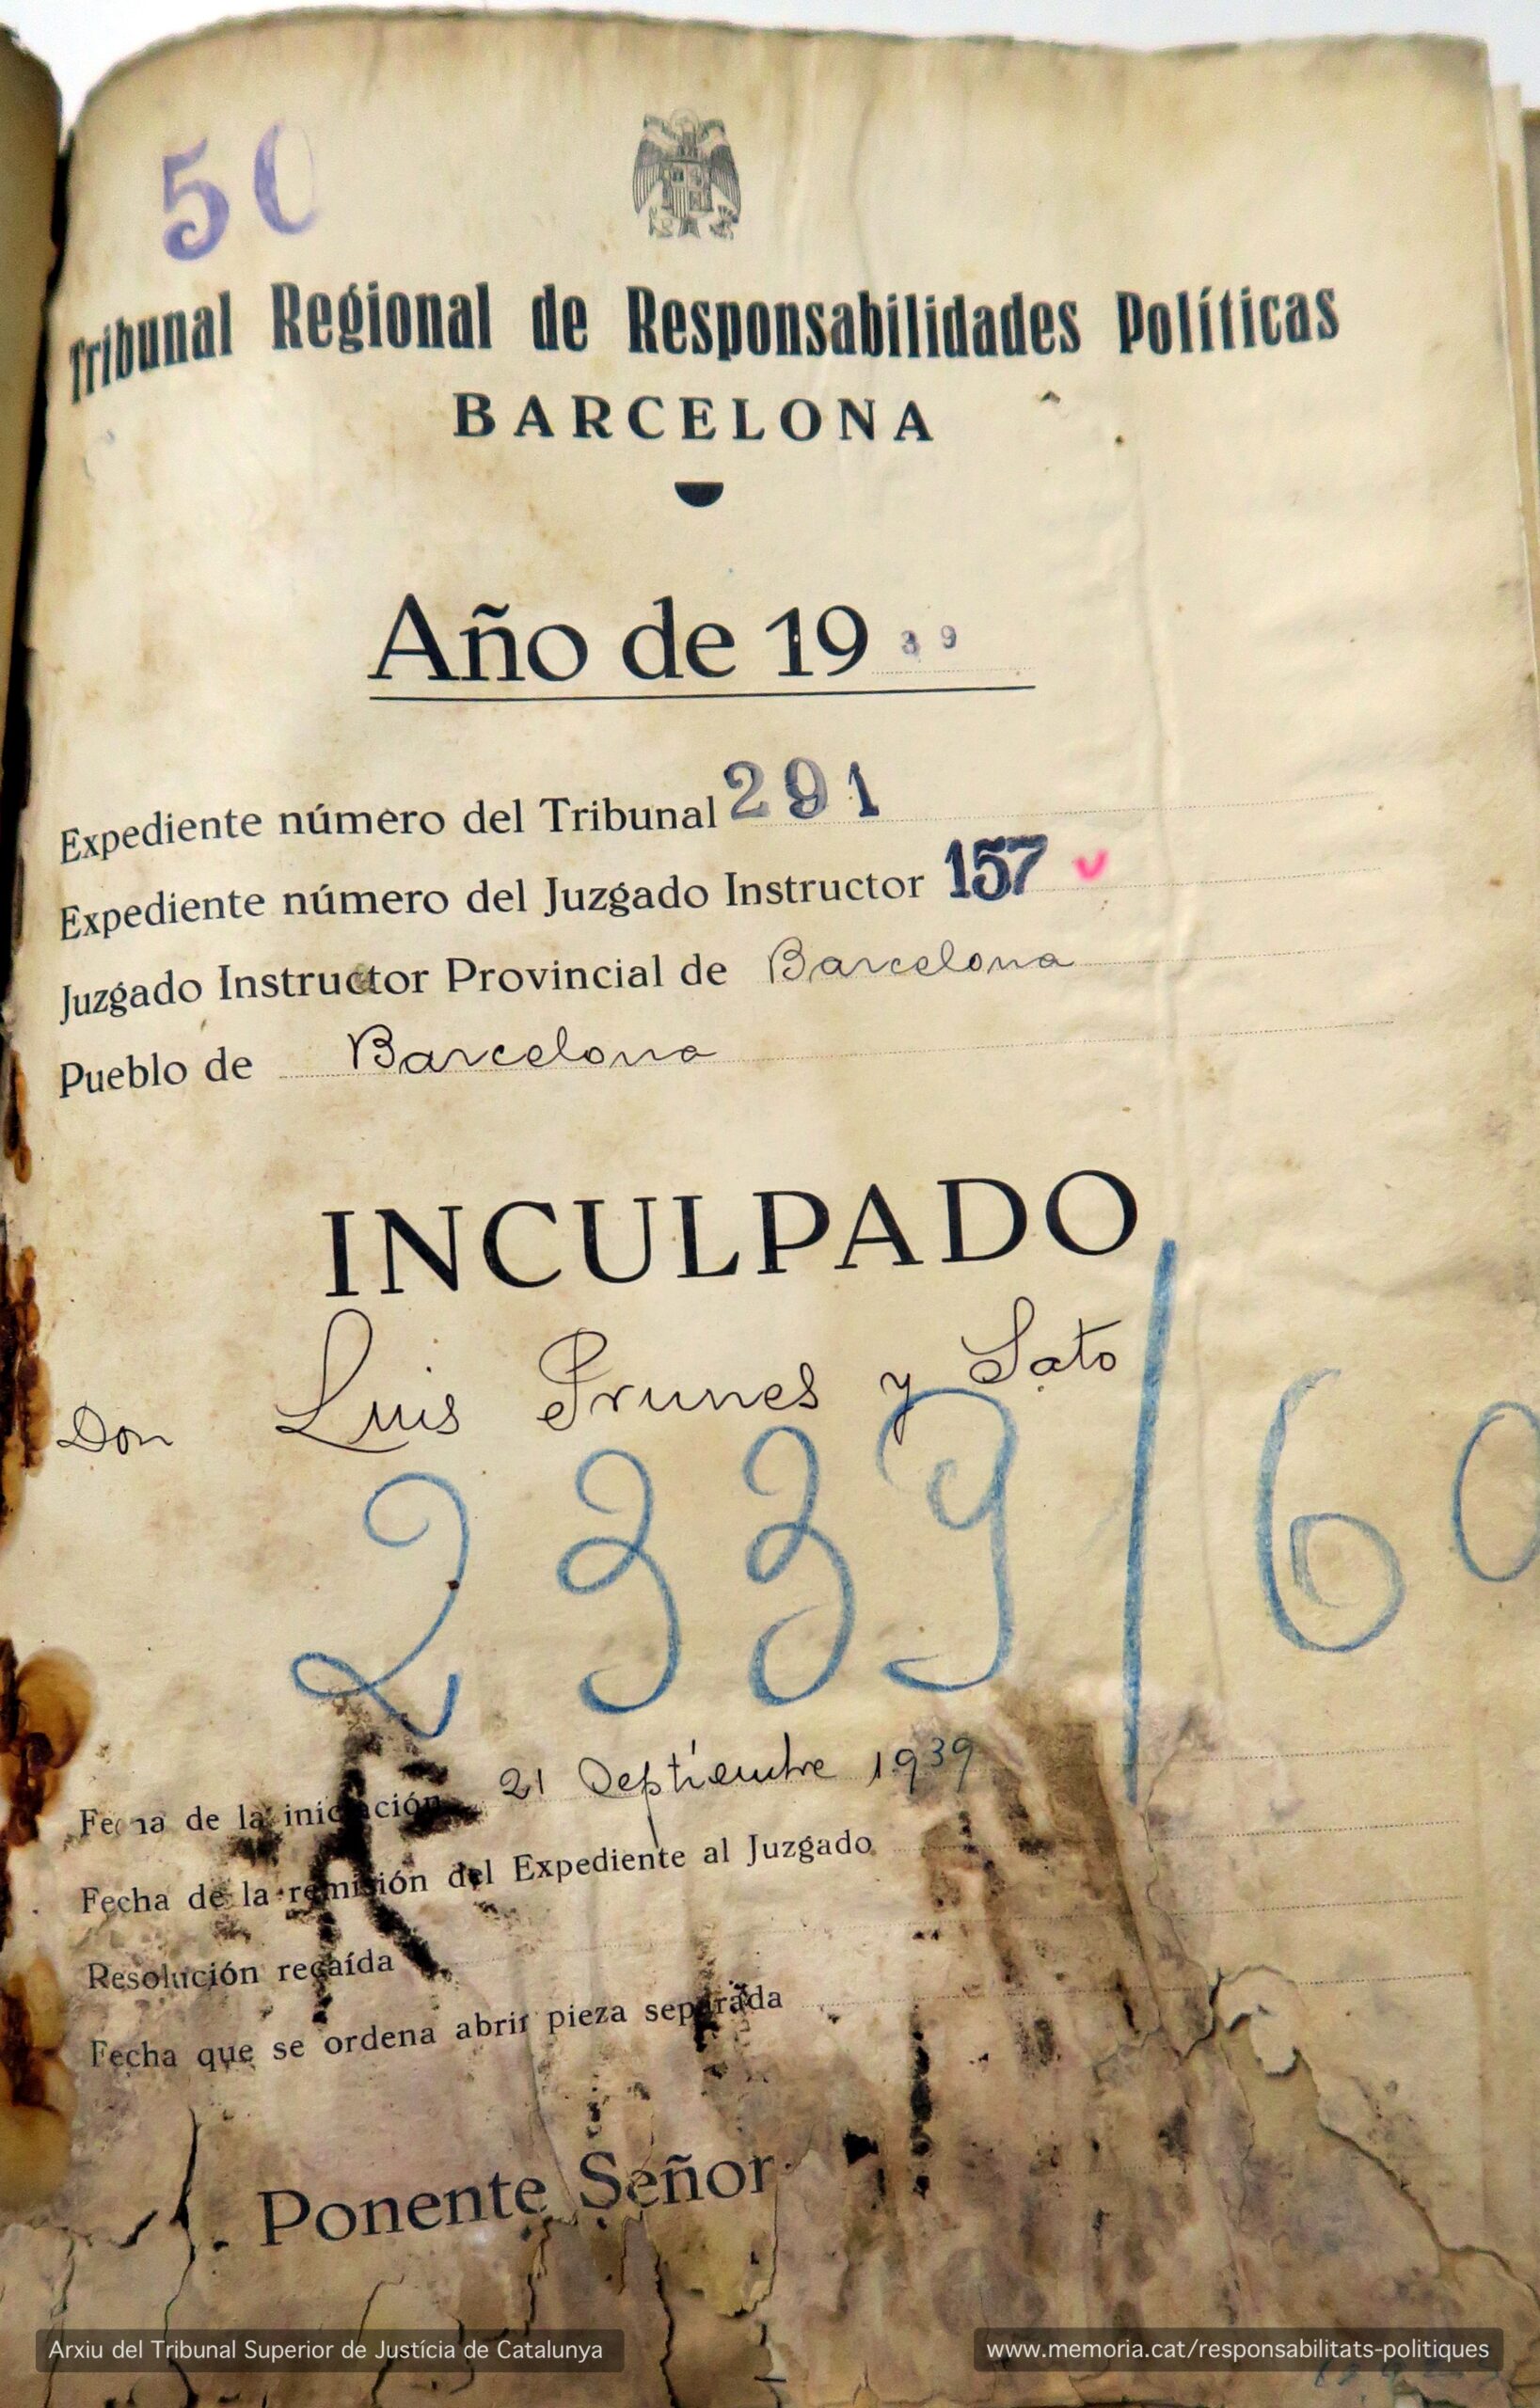 50
Tribunal Regional de Responsabilidades Políticas
BARCELONA
Año de 19 39
Expediente número del Tribunal 291
Expediente número del Juzgado Instructor 157
Juzgado Instructor Provincial de Barcelona
Pueblo de Barcelona
INCULPADO
Don Luis Prunes y Sato
2339/60
Fecha de la iniciación 21 Septiembre 1939
Fecha de la remisión del Expediente al Juzgado
Resolución recaída
Fecha que se ordena abrir pieza separada
Ponente Señor
Arxiu del Tribunal Superior de Justícia de Catalunya
www.memoria.cat/responsabilitats-politiques